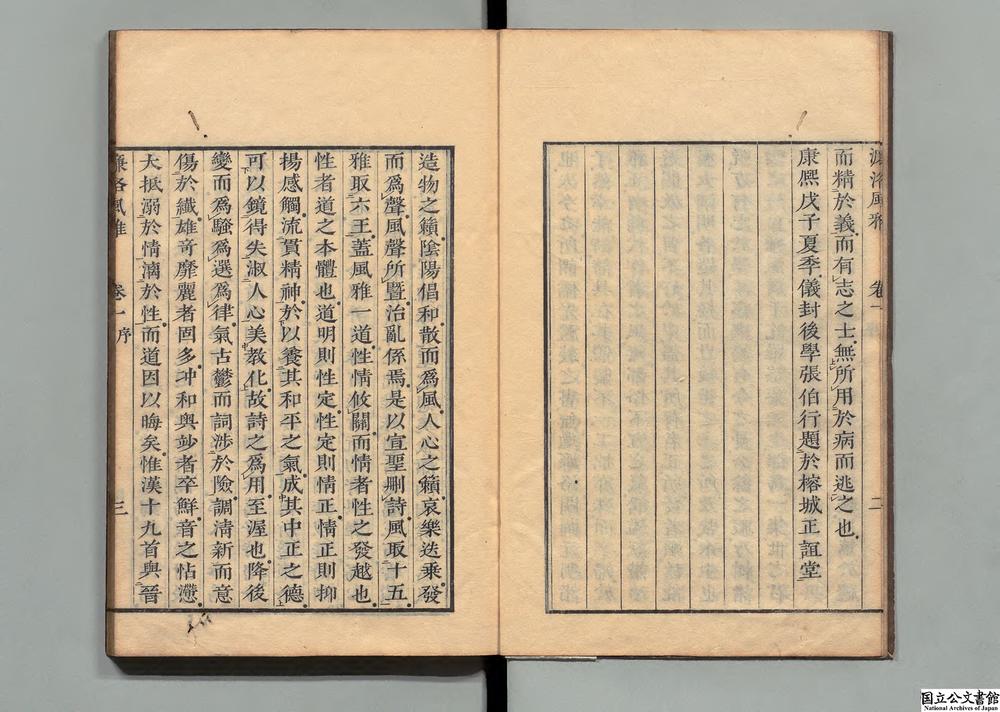 濂洛風雅 卷一 二
而精於義而有志之士無所用於病而逃之也
康熙戊子夏季儀封後學張伯行題於榕城正誼堂
造物之籟陰陽倡和散而爲風人心之籟哀樂迭乘發
而爲聲風聲所曁治亂係焉是以宣聖刪詩風取十五
雅取六王蓋風雅一道性情攸關而情者性之發越也
性者道之本體也道明則性定性定則情正情正則抑
揚感觸流貫精神於以養其和平之氣成其中正之德
可以鏡得失淑人心美教化故詩之爲用至渥也降後
變而爲騷爲選爲律氣古鬱而詞涉於險調淸新而意
傷於纖雄奇靡麗者固多冲和與妙者卒鮮音之怗懘
大抵溺於情漓於性而道因以晦矣惟漢十九首與晉
濂洛風雅 卷一序 三
国立公文書館
National Archives of Japan